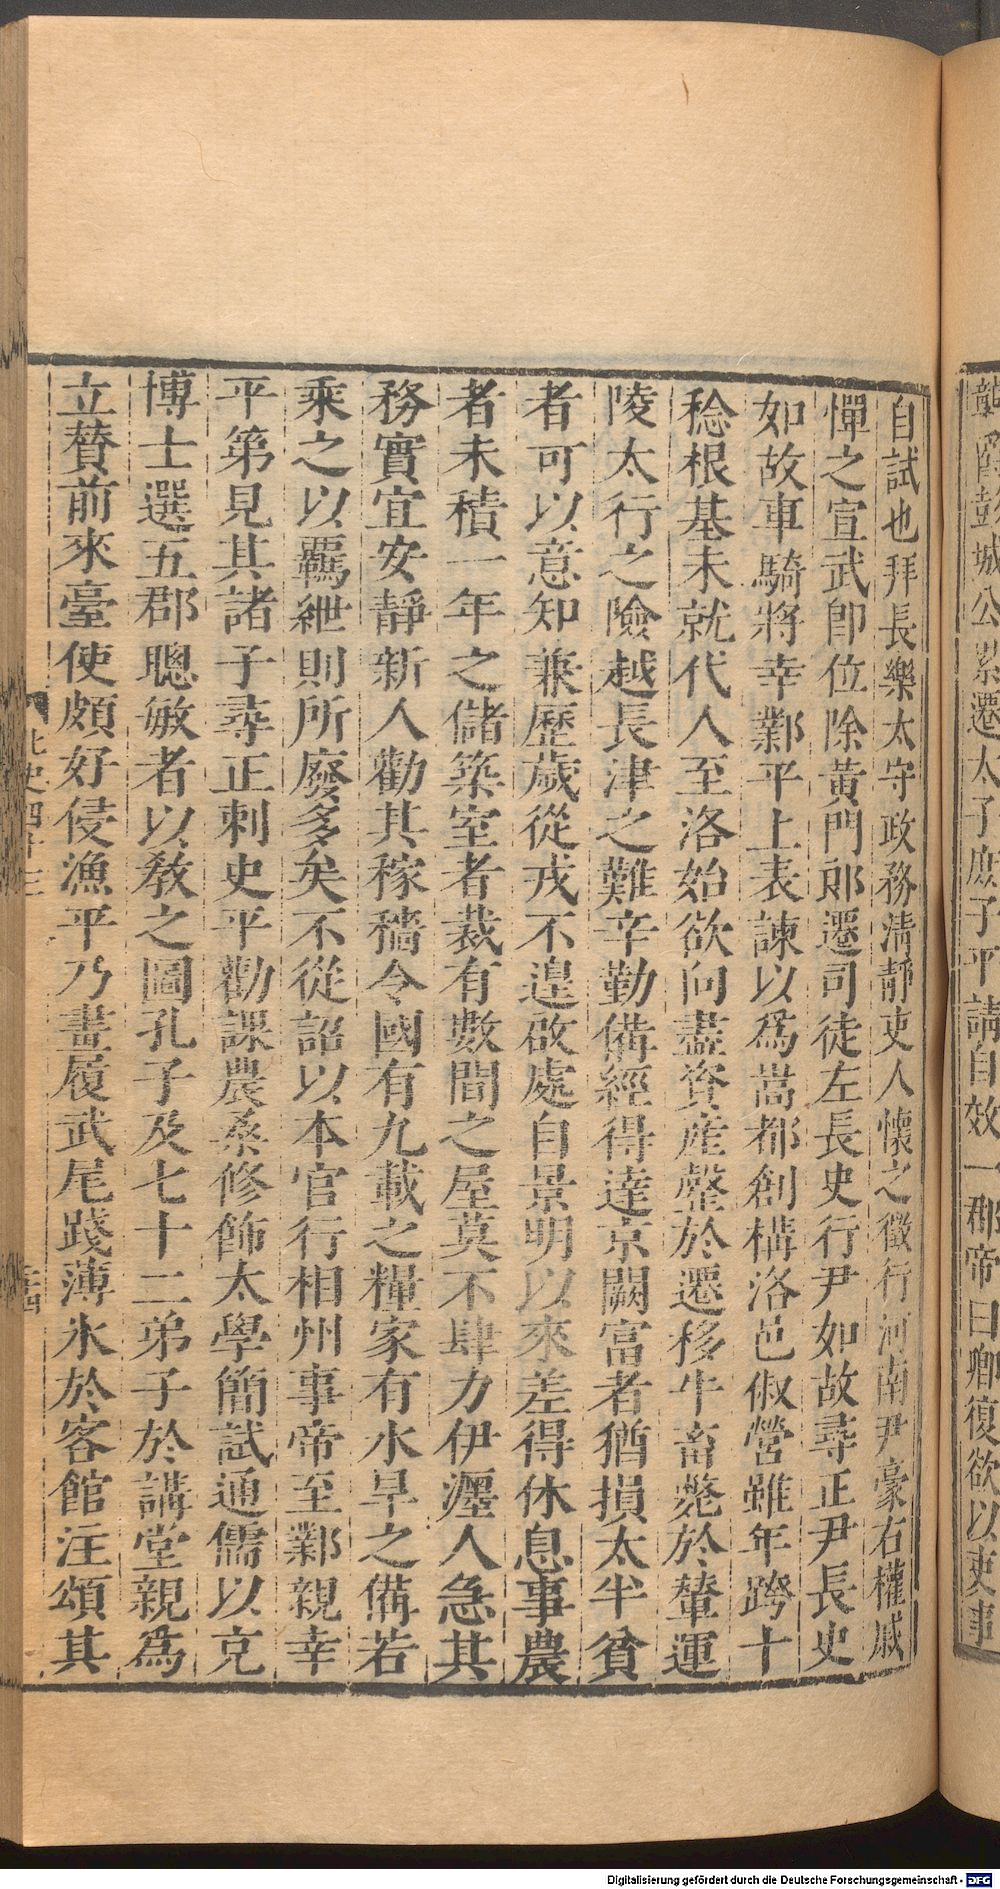 龍襲爵彭城公累遷太子庶子平請自效一郡帝曰卿復欲以吏事
自試也拜長樂太守政務清靜吏人懷之徵行河南尹豪右權戚
憚之宣武卽位除黃門郎遷司徒左長史行尹如故尋正尹長史
如故車騎將幸鄴平上表諫以爲嵩都創構洛邑俶營雖年跨十
稔根基未就代人至洛始欲向盡資產罄於遷移牛畜斃於輦運
陵太行之險越長津之難辛勤備經得達京闕富者猶損太半貧
者可以意知兼歷歲從戎不遑啟處自景明以來差得休息事農
者未積一年之儲築室者裁有數間之屋莫不肆力伊瀍人急其
務實宜安靜新人勸其稼穡令國有九載之糧家有水旱之備若
乘之以羈紲則所廢多矣不從詔以本官行相州事帝至鄴親幸
平第見其諸子尋正刺史平勸課農桑修飾太學簡試通儒以充
博士選五郡聰敏者以教之圖孔子及七十二弟子於講堂親為
立贊前來臺使頗好侵漁平乃畫履武尾踐薄氷於客館注頌其
北史四十三
Digitalisierung gefördert durch die Deutsche Forschungsgemeinschaft - DFG